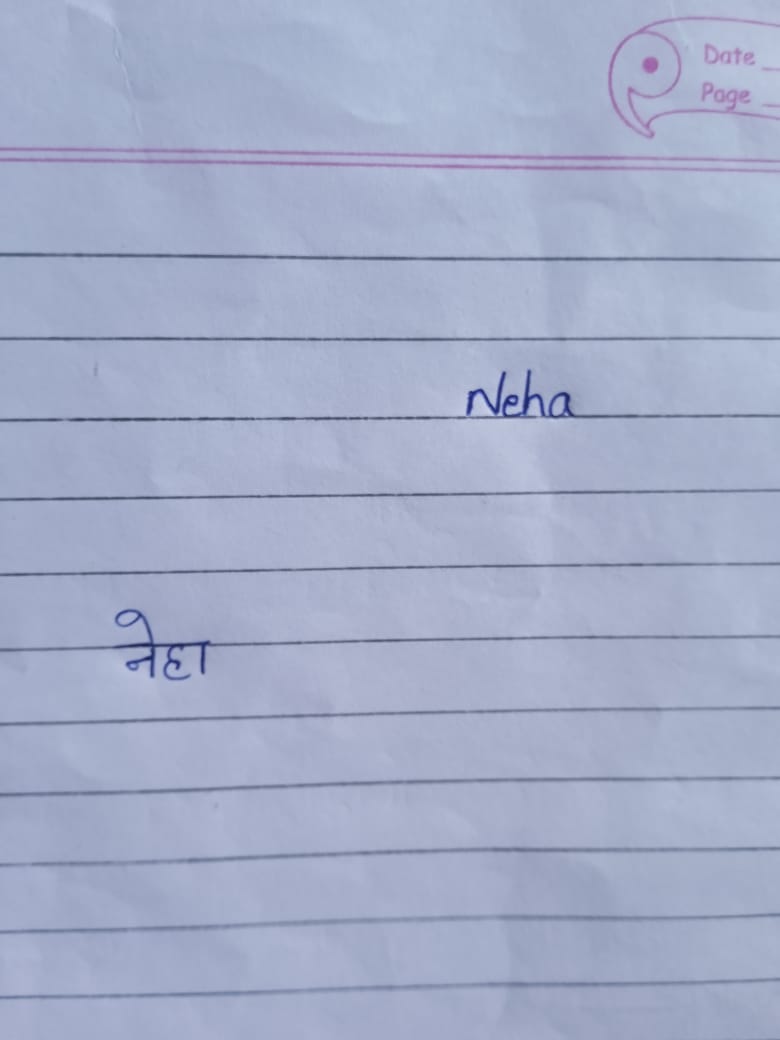 Date
Page
Neha
नेहा